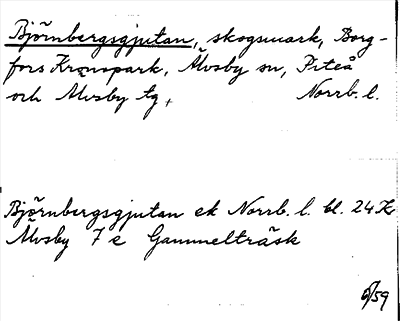 Björnbergsgjutan, skogsmark, Borg-
fors Kronopark, Älvsby sn, Piteå
och Älvsby tg, Norrb. l.
Björnbergsgjutan ek Norrb. l. bl. 24 K
Älvsby 7 e Gammelträsk
6/59